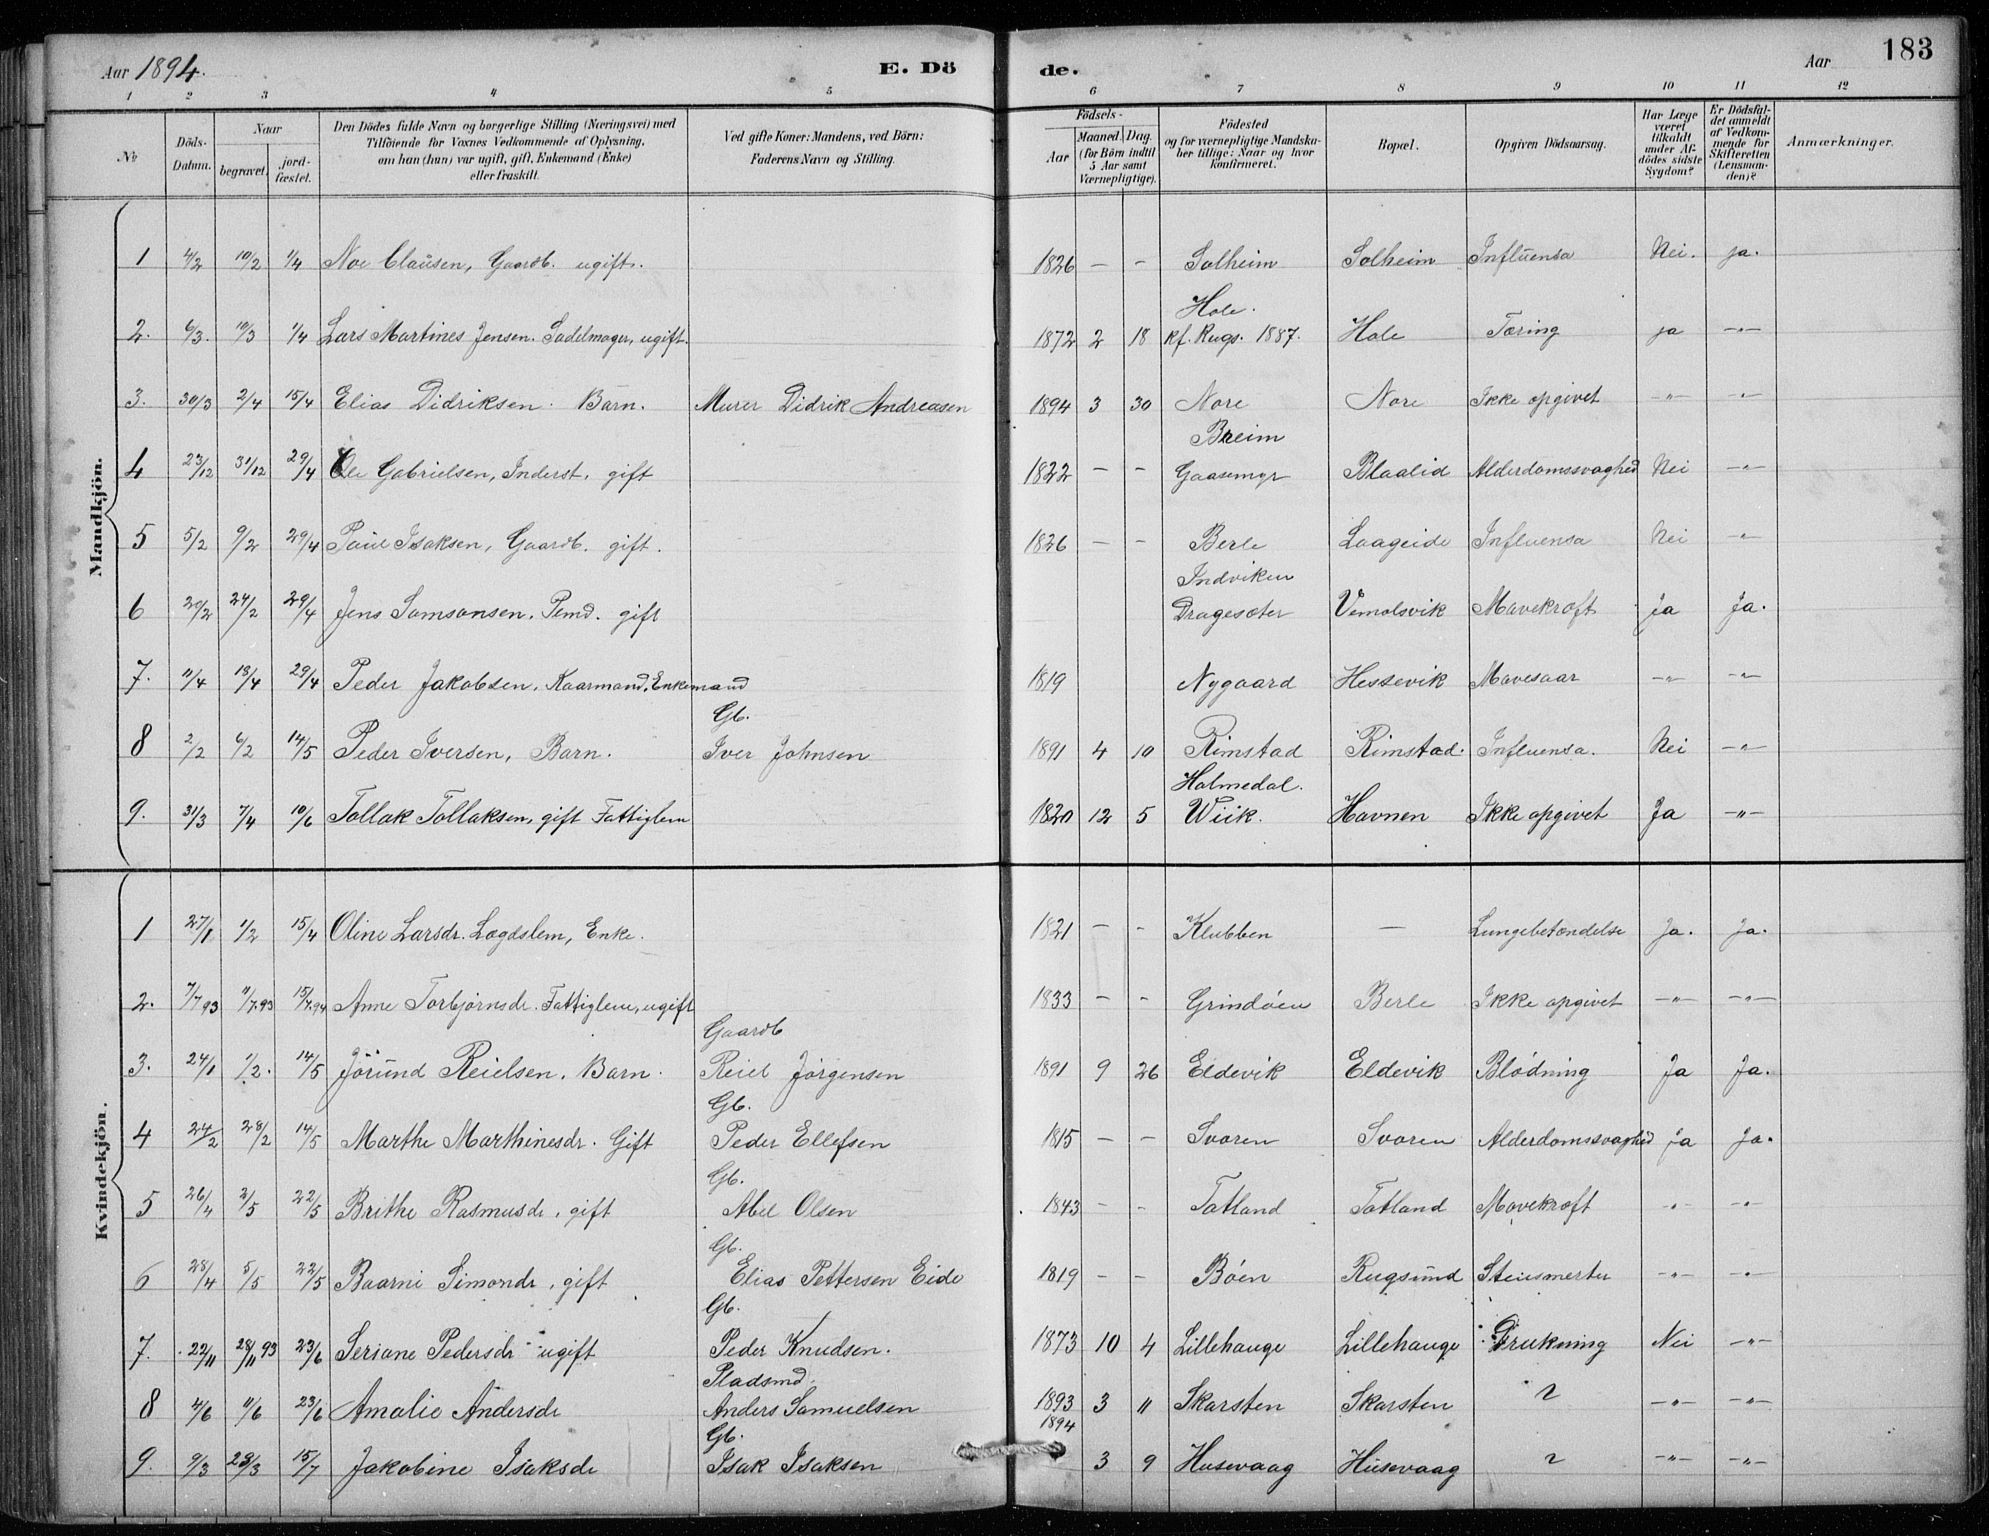 Aar 1894. E. Dö de. Aar 183
1 2 3 4 5 6 7 8 9 10 11 12
No Döds-Datum. Naar begravet. jordfæstet. Den Dödes fulde Navn og borgerlige Stilling (Næringsvei) med Tilföiende for Voxnes Vedkommende af Oplysning, om han (hun) var ugift, gift, Enkemand (Enke) eller fraskilt. Ved gifte Koner: Mandens, ved Börn: Faderens Navn og Stilling. Födsels- Aar Maaned. Dag. (for Börn indtil 5 Aar samt Værnepligtige). Födested og for værnepligtige Mandskaber tillige: Naar og hvor konfirmeret. Bopæl. Opgiven Dödsaarsag. Har Læge været tilkaldt under Afdödes sidste Sygdom? Er Dödsfaldet anmeldt af Vedkommende for Skifteretten (Lensmanden)? Anmærkninger.
Mandkjön.
1 4/2 10/2 1/4 Noe Clausen, Gaardb. ugift. 1826 – – Solheim Solheim Influensa Nei. ja.
Hole.
2. 6/3. 10/3 1/4 Lars Martines Jensen. Sadelmager, ugift. 1872 2 18 kf. Rugs. 1887. Hole Tæring ja –"–
3. 30/3 2/4 15/4 Elias Didriksen. Barn. Murer Didrik Andreasen 1894 3 30 Nore Nore Ikke opgivet –"– –"–
Breim
4 23/12 31/12 29/4 Ole Gabrielsen, Inderst, gift 1822 – – Gaasemyr Blaalid Alderdomssvaghed Nei –"–
5 5/2 9/2 29/4 Paul Isaksen, Gaardb. gift. 1826 – – Berle Laageide Influensa Nei –"–
Indviken
6 20/2 24/2 29/4 Jens Samsonsen. Pemd. gift Dragesæter Vemolsvik Mavekræft ja Ja.
7. 11/4 18/4 29/4 Peder Jakobsen, Kaarmand, Enkemand 1819 Nygaard Hessevik Mavesaar –"– –"–
Gb.
8 2/2 6/2 14/5 Peder Iversen, Barn. Iver Johnsen 1891 4 10 Rimstad Rimstad. Influensa. Nei –"–
Holmedal.
9. 31/3 7/4 10/6 Tollak Tollaksen, gift Fattiglem 1820 12 5 Wiik. Havnen Ikke opgivet Ja –"–
Kvindekjön.
1 27/1 1/2 15/4 Oline Larsdr. Lægdslem, Enke. 1821 – – Klubben – Lungebetændelse Ja. Ja.
2. 7/7 93 11/7.93 15/4.94 Anne Torbjørnsdr. Fattiglem, ugift 1833 – – Grindöen Berle Ikke opgivet –"– –"–
Gaardb
3. 24/1 1/2. 14/5 Jörund Reielsen. Barn. Reiel Jörgensen 1891 9 26 Eldevik Eldevik Blödning Ja Ja.
Gb.
4 24/2 28/2 14/5 Marthe Marthinesdr. Gift Peder Ellefsen 1815 – – Svoren Svoren Alderdomssvaghed ja Ja.
Gb.
5 26/4 2/5 22/5 Brithe Rasmusdr, gift Abel Olsen 1843 – – Totland Totland Mavekræft –"– –"–
Gb.
6 28/4 5/5 22/5 Baarni Simondr, gift Elias Pettersen Eide 1819 – – Böen Rugsund Stensmerter –"– –"–
Gb.
7. 22/11 28/11 93 23/6 Seriane Pedersdr ugift Peder Knudsen. 1873 10 4 Lillehauge Lillehauge Drukning Nei –"–
Pladsmd.
8 4/6 11/6 23/6 Amalie Andersdr Anders Samuelsen 1893 3 11 Skarsten Skarsten ? –"– –"–
Gb. 1894
9. 9/3 28/3 15/7 Jakobine Isaksdr Isak Isaksen 3 9 Husevaag Husevaag ? –"– –"–